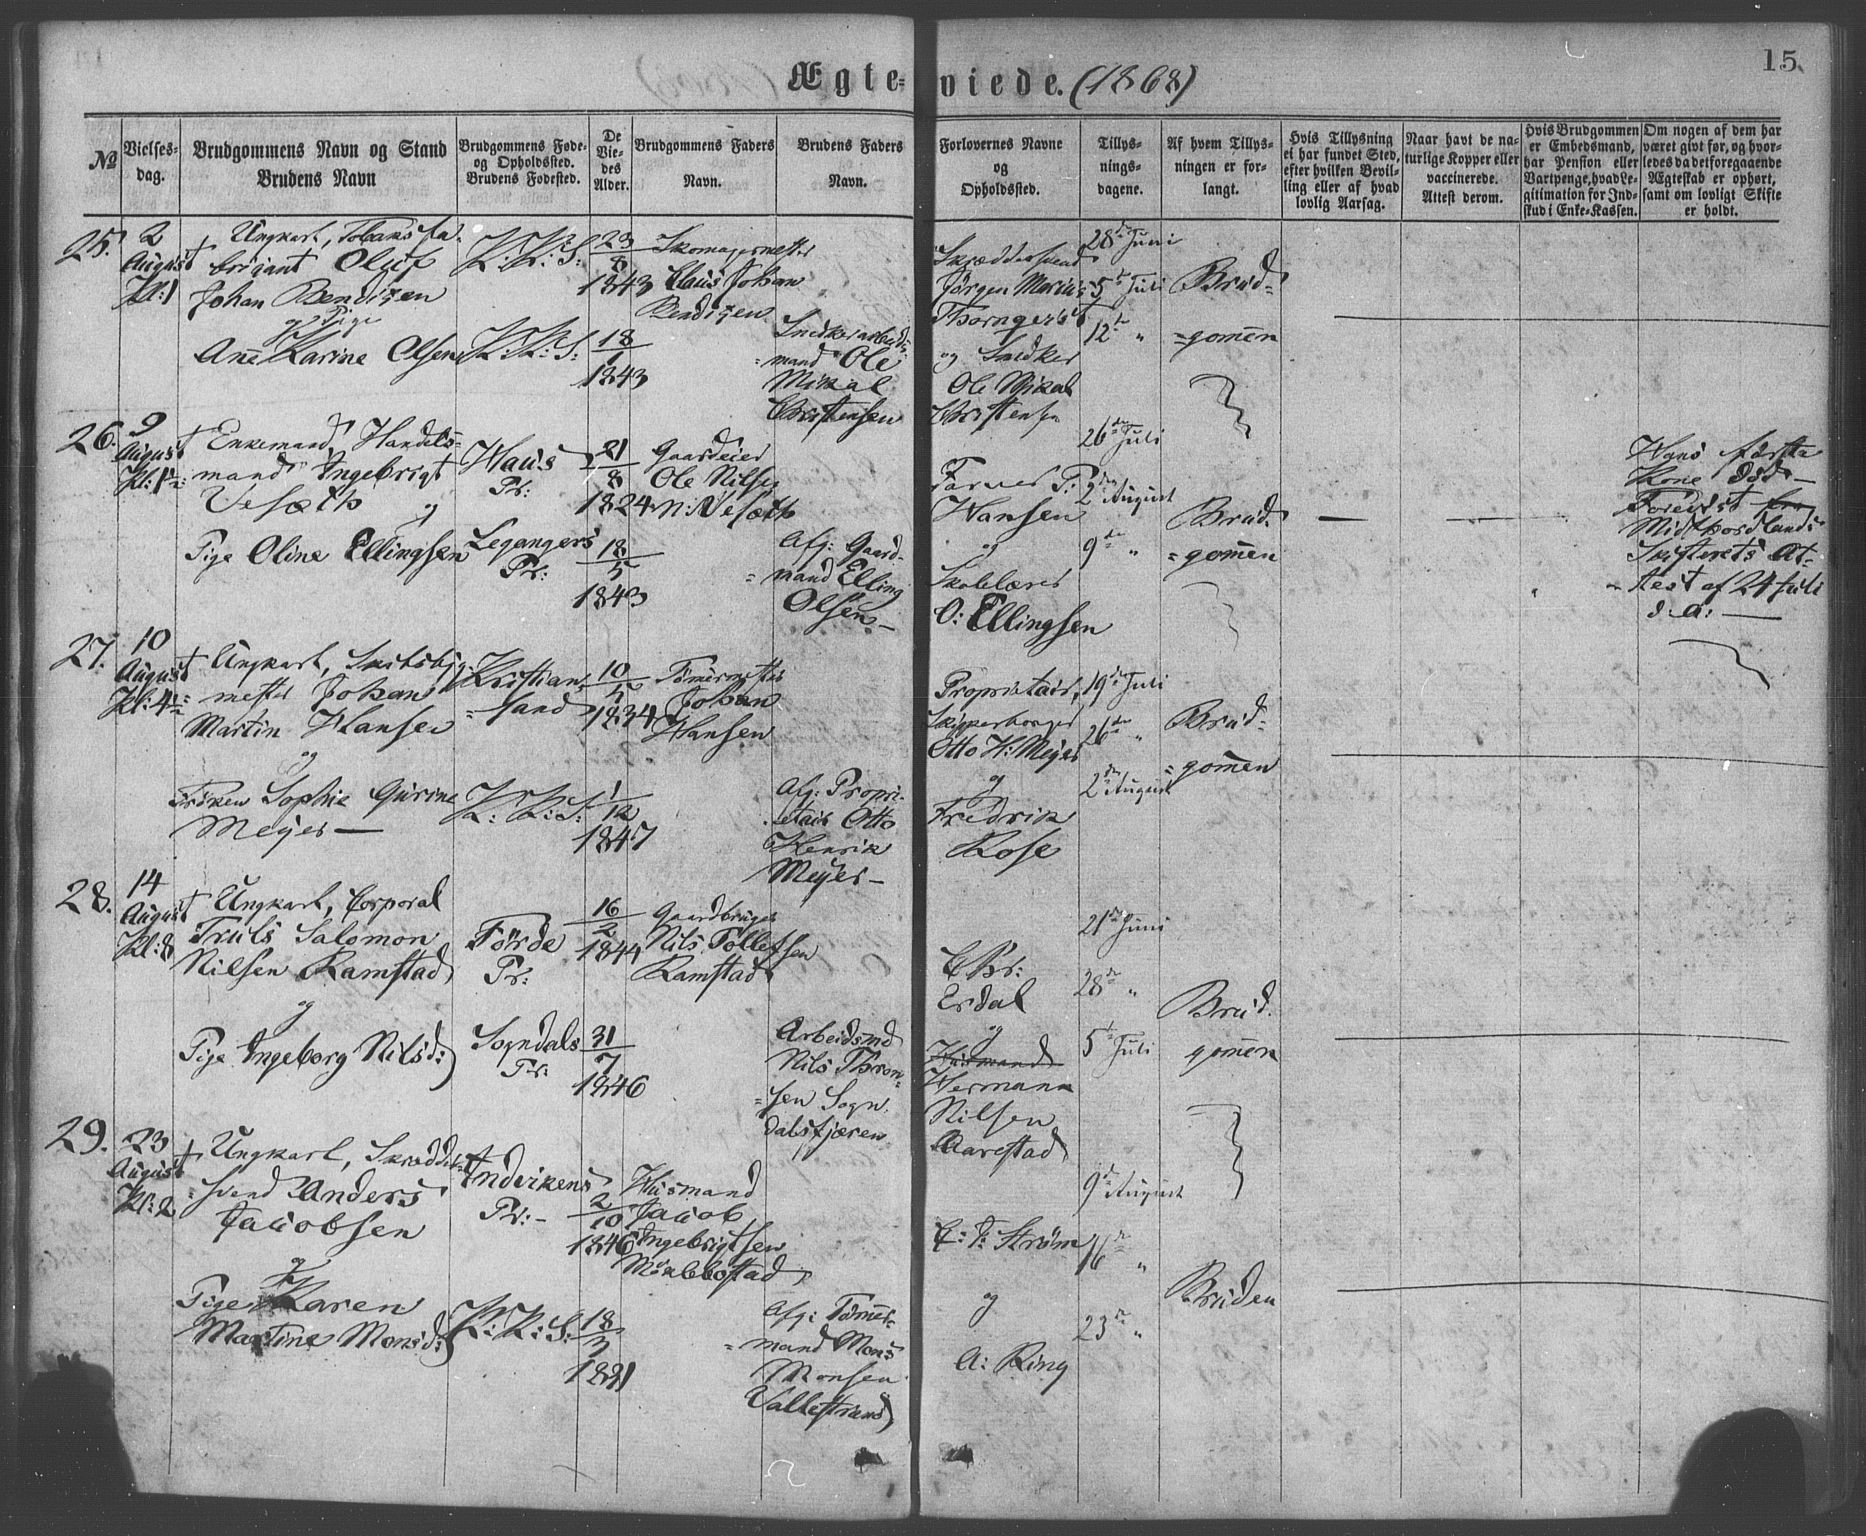 15.
Ægte-viede. (1868)
№
Vielses-
dag.
Brudgommens Navn og Stand
Brudens Navn
Brudgommens Føde-
og Opholdssted.
Brudens Fødested.
De
Vie-
des
Alder.
Brudgommens Faders
Navn.
Brudens Faders
Navn.
Forlovernes Navne
og
Opholdssted.
Tillys-
nings-
dagene.
Af hvem Tillys-
ningen er for-
langt.
Hvis Tillysning
ei har fundet Sted,
efter hvilken Bevil-
ling eller af hvad
lovlig Aarsag.
Naar havt de na-
turlige Kopper eller
vaccinerede.
Attest derom.
Hvis Brudgommen
er Embedsmand,
har Pension eller
Vartpenge, hvad Le-
gitimation for Ind-
skud i Enke-Kassen.
Om nogen af dem har
været givt før, og hvor-
ledes da det foregaaende
Ægteskab er ophørt,
samt om lovligt Skifte
er holdt.
25.
2
August
Kl: 1
Ungkarl, Tobaksfa-
brikant Oluf
Johan Bendixen
og Pige
Ane Karine Olsen
K: K: S:
K: K: S:
23
8
1843
18
1
1843
Skomagermester
Claus Johan
Bendixen
Snedkerarbeids-
=mand Ole
Mikal
Christensen
Skræddersvend
Jørgen Marius
Thorngerst
og Snedker
Ole Mikal
Christensen
28de Juni
5te Juli
12te "
Brud=
=gommen
26.
9
August
Enkemand, Handels=
mand Ingebrigt
Vesæth og
Pige Oline Ellingsen
Haus
Pr:
Leganger
Pr:
21
8
1824
18
5
1843
Gaardeier
Ole Nilsen
N: Vesæth
Afg: Gaard-
=mand Elling
Olsen
Farver P:
Hansen
og
Skolelærer
O: Ellingsen
26de Juli
2den August
9de "
Brud-
=gommen
Hans første
Kone død
Forevist
Midthordlands
Skifterets At-
-test af 24 Juli
d: A:
27.
10
August
Ungkarl, Skibsbyg-
mester Johan
Martin Hansen
og
Frøken Sophie Gurine
Meyer
Kristian-
=sand
K: K: S:
10
5
1834
1
12
1847
Tømermester
Johan
Hansen
Afg: Propri-
etair Otto
Henrik
Meyer
Proprietair,
Skipperborger
Otto H: Meyer
og
Fredrik
Rose
19de Juli
26de "
2den August
Brud-
=gommen
28.
14
August
Kl: 8
Ungkarl, Corporal
Truls Salomon
Nilsen Ramstad
og
Pige Ingeborg Nilsd:
Førde
Pr:
Sogndals
Pr:
16
2
1844
31
7
1846
Gaardbruger
Nils Tollefsen
Ramstad
Arbeidsmd
Nils Thron-
=sen Sogn-
dalsfjæren
Chr:
Erdal
og
Husmand
Hermann
Nilsen
Aarestad
21de Juni
28de "
5te Juli
Brud-
gommen
29.
23
August
Kl: 2
Ungkarl, Skrædder-
svend Anders
Jacobsen
og
Pige Karen
Martine Monsd:
Indvikens
Pr:
K: K: S:
2
10
1846
18
3
Husmand
Jacob
Ingebrigtsen
Afg: Tømer-
=mand Mons
Monsen
Vallestrand
C: F: Strøm
og
A: Ring
9de August
16de "
23de "
Bruden